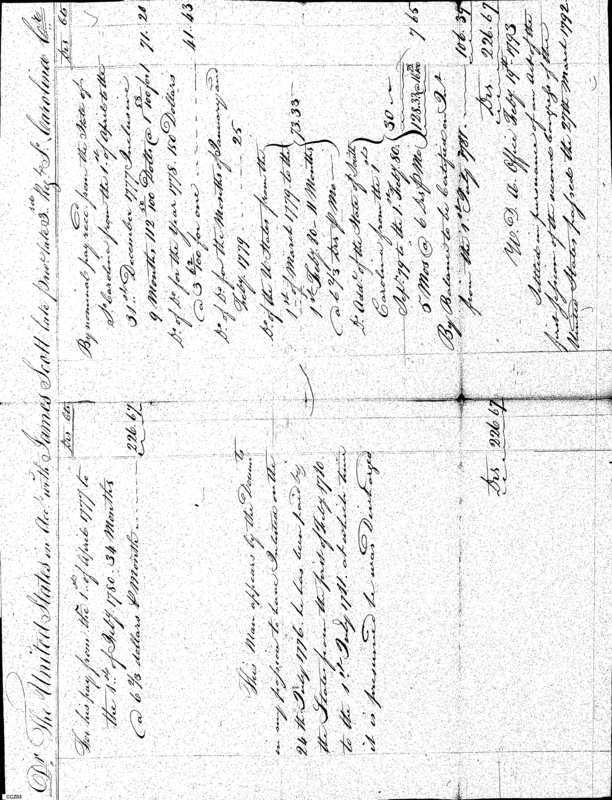 Dr The United States in Acct with James Scott late Private late 3 Regt So Carolina Cr
Drs Cts
For his pay from the 1st of April 1777 to
the 1st of Feby 1780. 34 Months
@ 6 2/3 dollars P Month 226.67
This Man appears by the Docum'ts
in my possession to have Inlisted on the
24th July 1776. he has been paid by
the State from the first of Feby 1780.
to the 1st Feby 1781. at which time
it is presumed he was Discharged
Drs 226.67
Drs Cts
By nominal pay rec'd from the State of
So Carolina from the 1st of April to the
31st December 1777 Inclusive
9 Months 112 Dolls @ for 1 71.20
Do of Do for the Year 1778 150 Dollars
@ 3 for one 41.43
Do of Do for the Months of January and
Feby 1779 25
Do of the U States from the
1st of March 1779 to the
1st Feby 80. 11 Months
@ 6 2/3 Drs P Mo 73.33
Do Add'l of the State of South
Carolina from the 1st
Sept 79 to the 1st Feby 80.
5 Mos @ 6 Drs P Mo 30
128.33 7 65
By Balance to be Certified on It
from the 1st Feby 1781. 106.39
Drs 226.67
W. D. A. Office Feby 19th 1793
Settled in pursuance of an Act of the
first session of the second Congress of the
United States passed the 27th March 1792
CCZ03